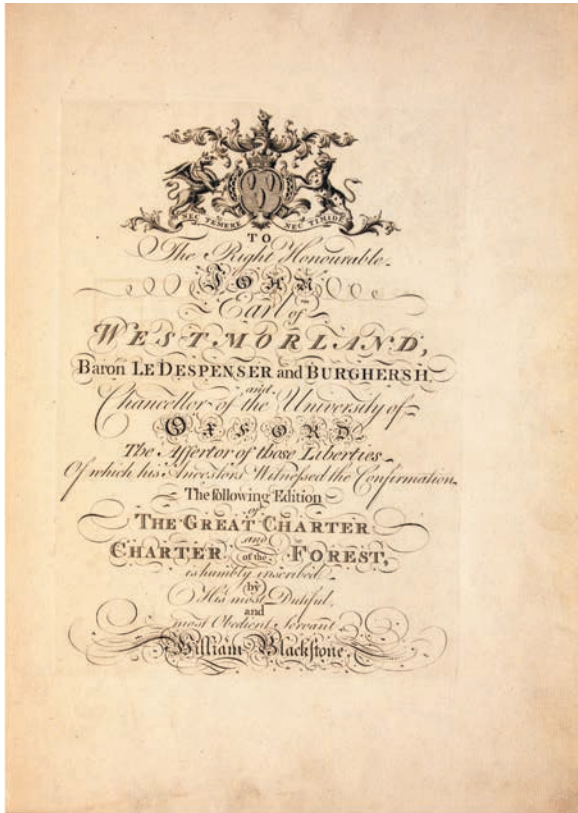 NEC TEMERE NEC TIMIDE
TO
The Right Honourable
JOHN
Earl of
WESTMORLAND,
Baron LE DESPENSER and BURGHERSH
and
Chancellor of the University of
OXFORD
The Aſſertor of those Liberties
Of which his Ancestors Witneſsed the Confirmation.
The following Edition
of
THE GREAT CHARTER
and
CHARTER of the FOREST,
is humbly inscribed
by
His most Dutiful
and
most Obedient Servant
William Blackſtone.